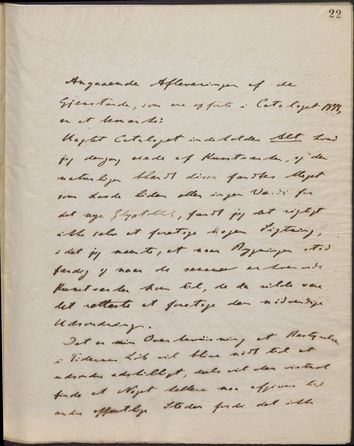 22
Angaaende Afleveringen af de
Gjenstande, som ere opførte i Cataloget 1888,
er at bemærke:
Uagtet Cataloget indeholder Alt hvad
jeg dengang eiede af Kunstværker, og der
naturligvis blandt disse fandtes Meget
som havde liden eller ingen Værdi for
det nye Glyptothek, fandt jeg det rigtigt
ikke selv at foretage nogen Sigtning,
idet jeg meente, at naar Bygningen stod
færdig og naar de senere erhvervede
Kunstværker kom til, da de vilde være
det retteste at foretage den nødvendige
Udsondring.
Det er min Overbeviisning at Bestyrelsen
i Tidernes Løb vil blive nødt til at
udsondre adskilligt, dels vil den
finde at Noget hellere maa afgives til
andre offentlige Steder fordi det ikke